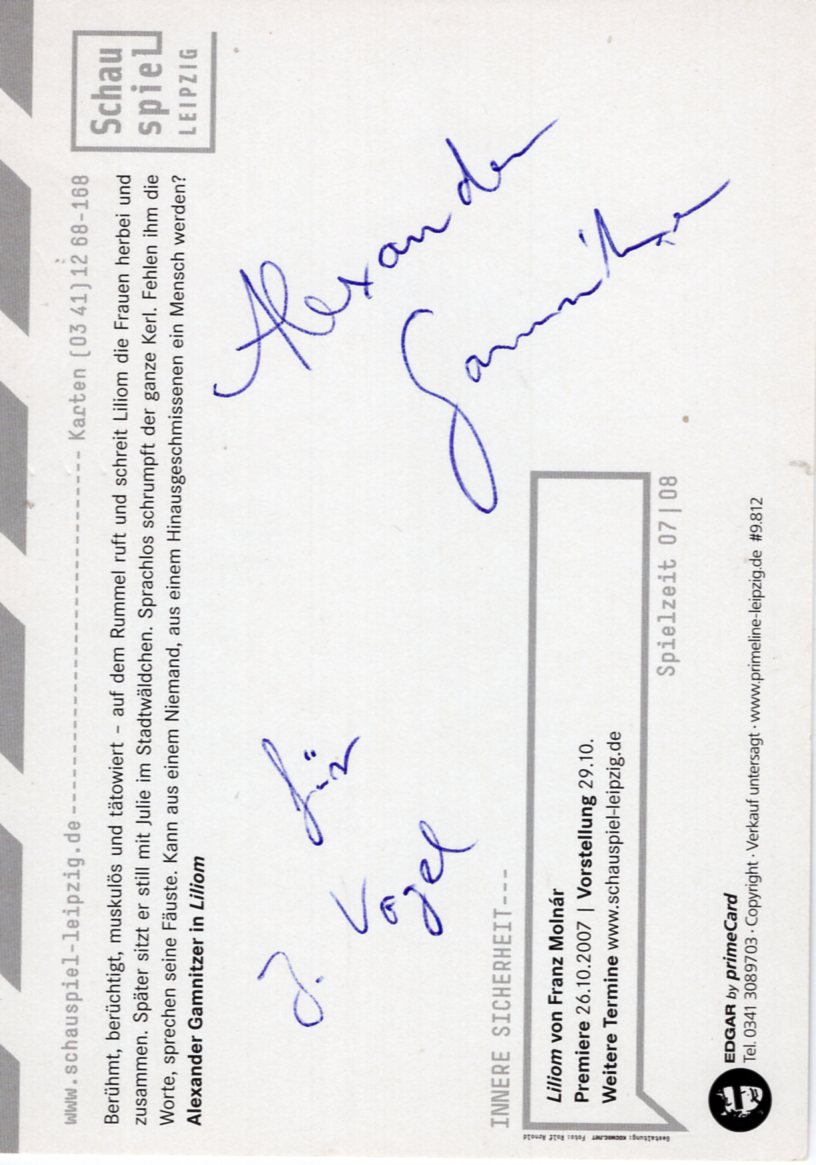 www.schauspiel-leipzig.de ---------------------------------------- Karten (03 41) 12 68-168
Schau
spiel
LEIPZIG
Berühmt, berüchtigt, muskulös und tätowiert – auf dem Rummel ruft und schreit Liliom die Frauen herbei und
zusammen. Später sitzt er still mit Julie im Stadtwäldchen. Sprachlos schrumpft der ganze Kerl. Fehlen ihm die
Worte, sprechen seine Fäuste. Kann aus einem Niemand, aus einem Hinausgeschmissenen ein Mensch werden?
Alexander Gamnitzer in Liliom
für
J. Vogel
Alexander
Gamnitzer
INNERE SICHERHEIT---
Liliom von Franz Molnár
Premiere 26.10.2007 | Vorstellung 29.10.
Weitere Termine www.schauspiel-leipzig.de
Spielzeit 07|08
Gestaltung: KOCMOC.NET Foto: Rolf Arnold
EDGAR by primeCard
Tel. 0341 3089703 · Copyright · Verkauf untersagt · www.primeline-leipzig.de #9.812